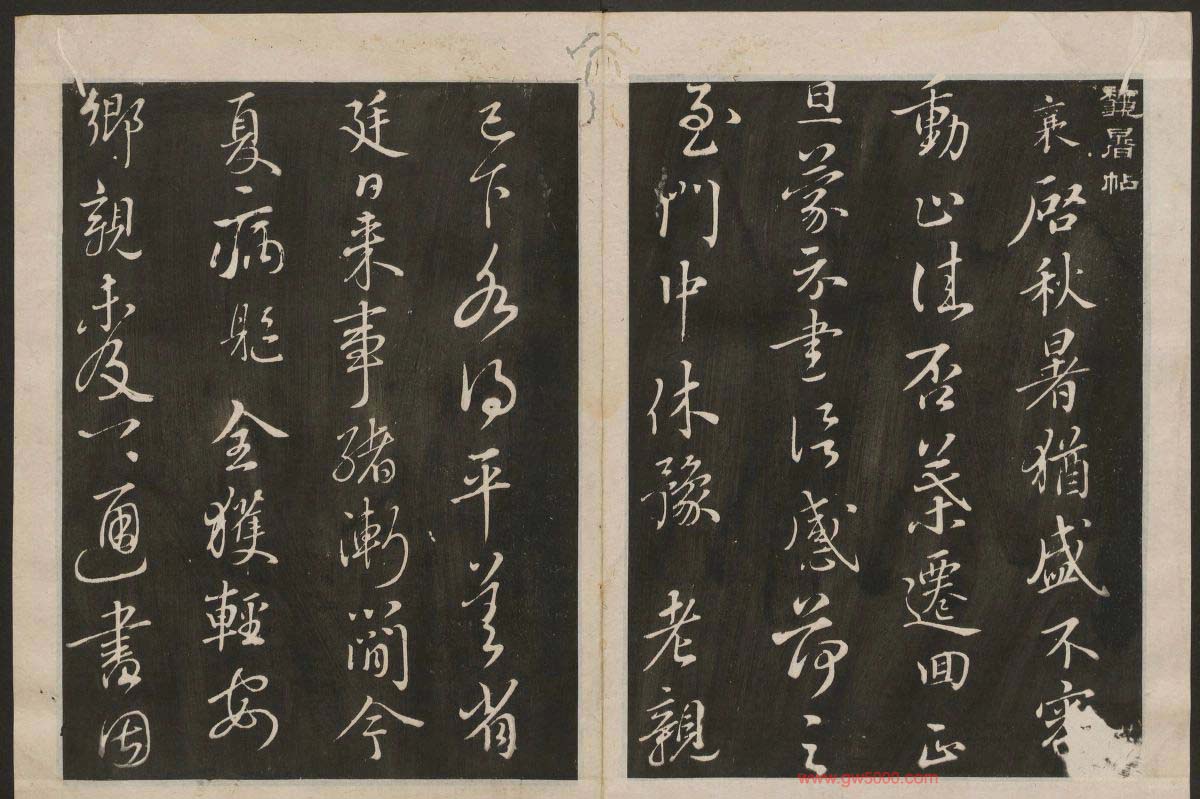 龝暑帖
襄啓秋暑猶盛不審
動止佳否葉遷回正
旦蒙示書信感荷之
至門中休豫老親
已下各得平善省
廷日来事緒漸簡今
夏病全獲輕安
鄉親未及一〻通書因
www.gw5000.com